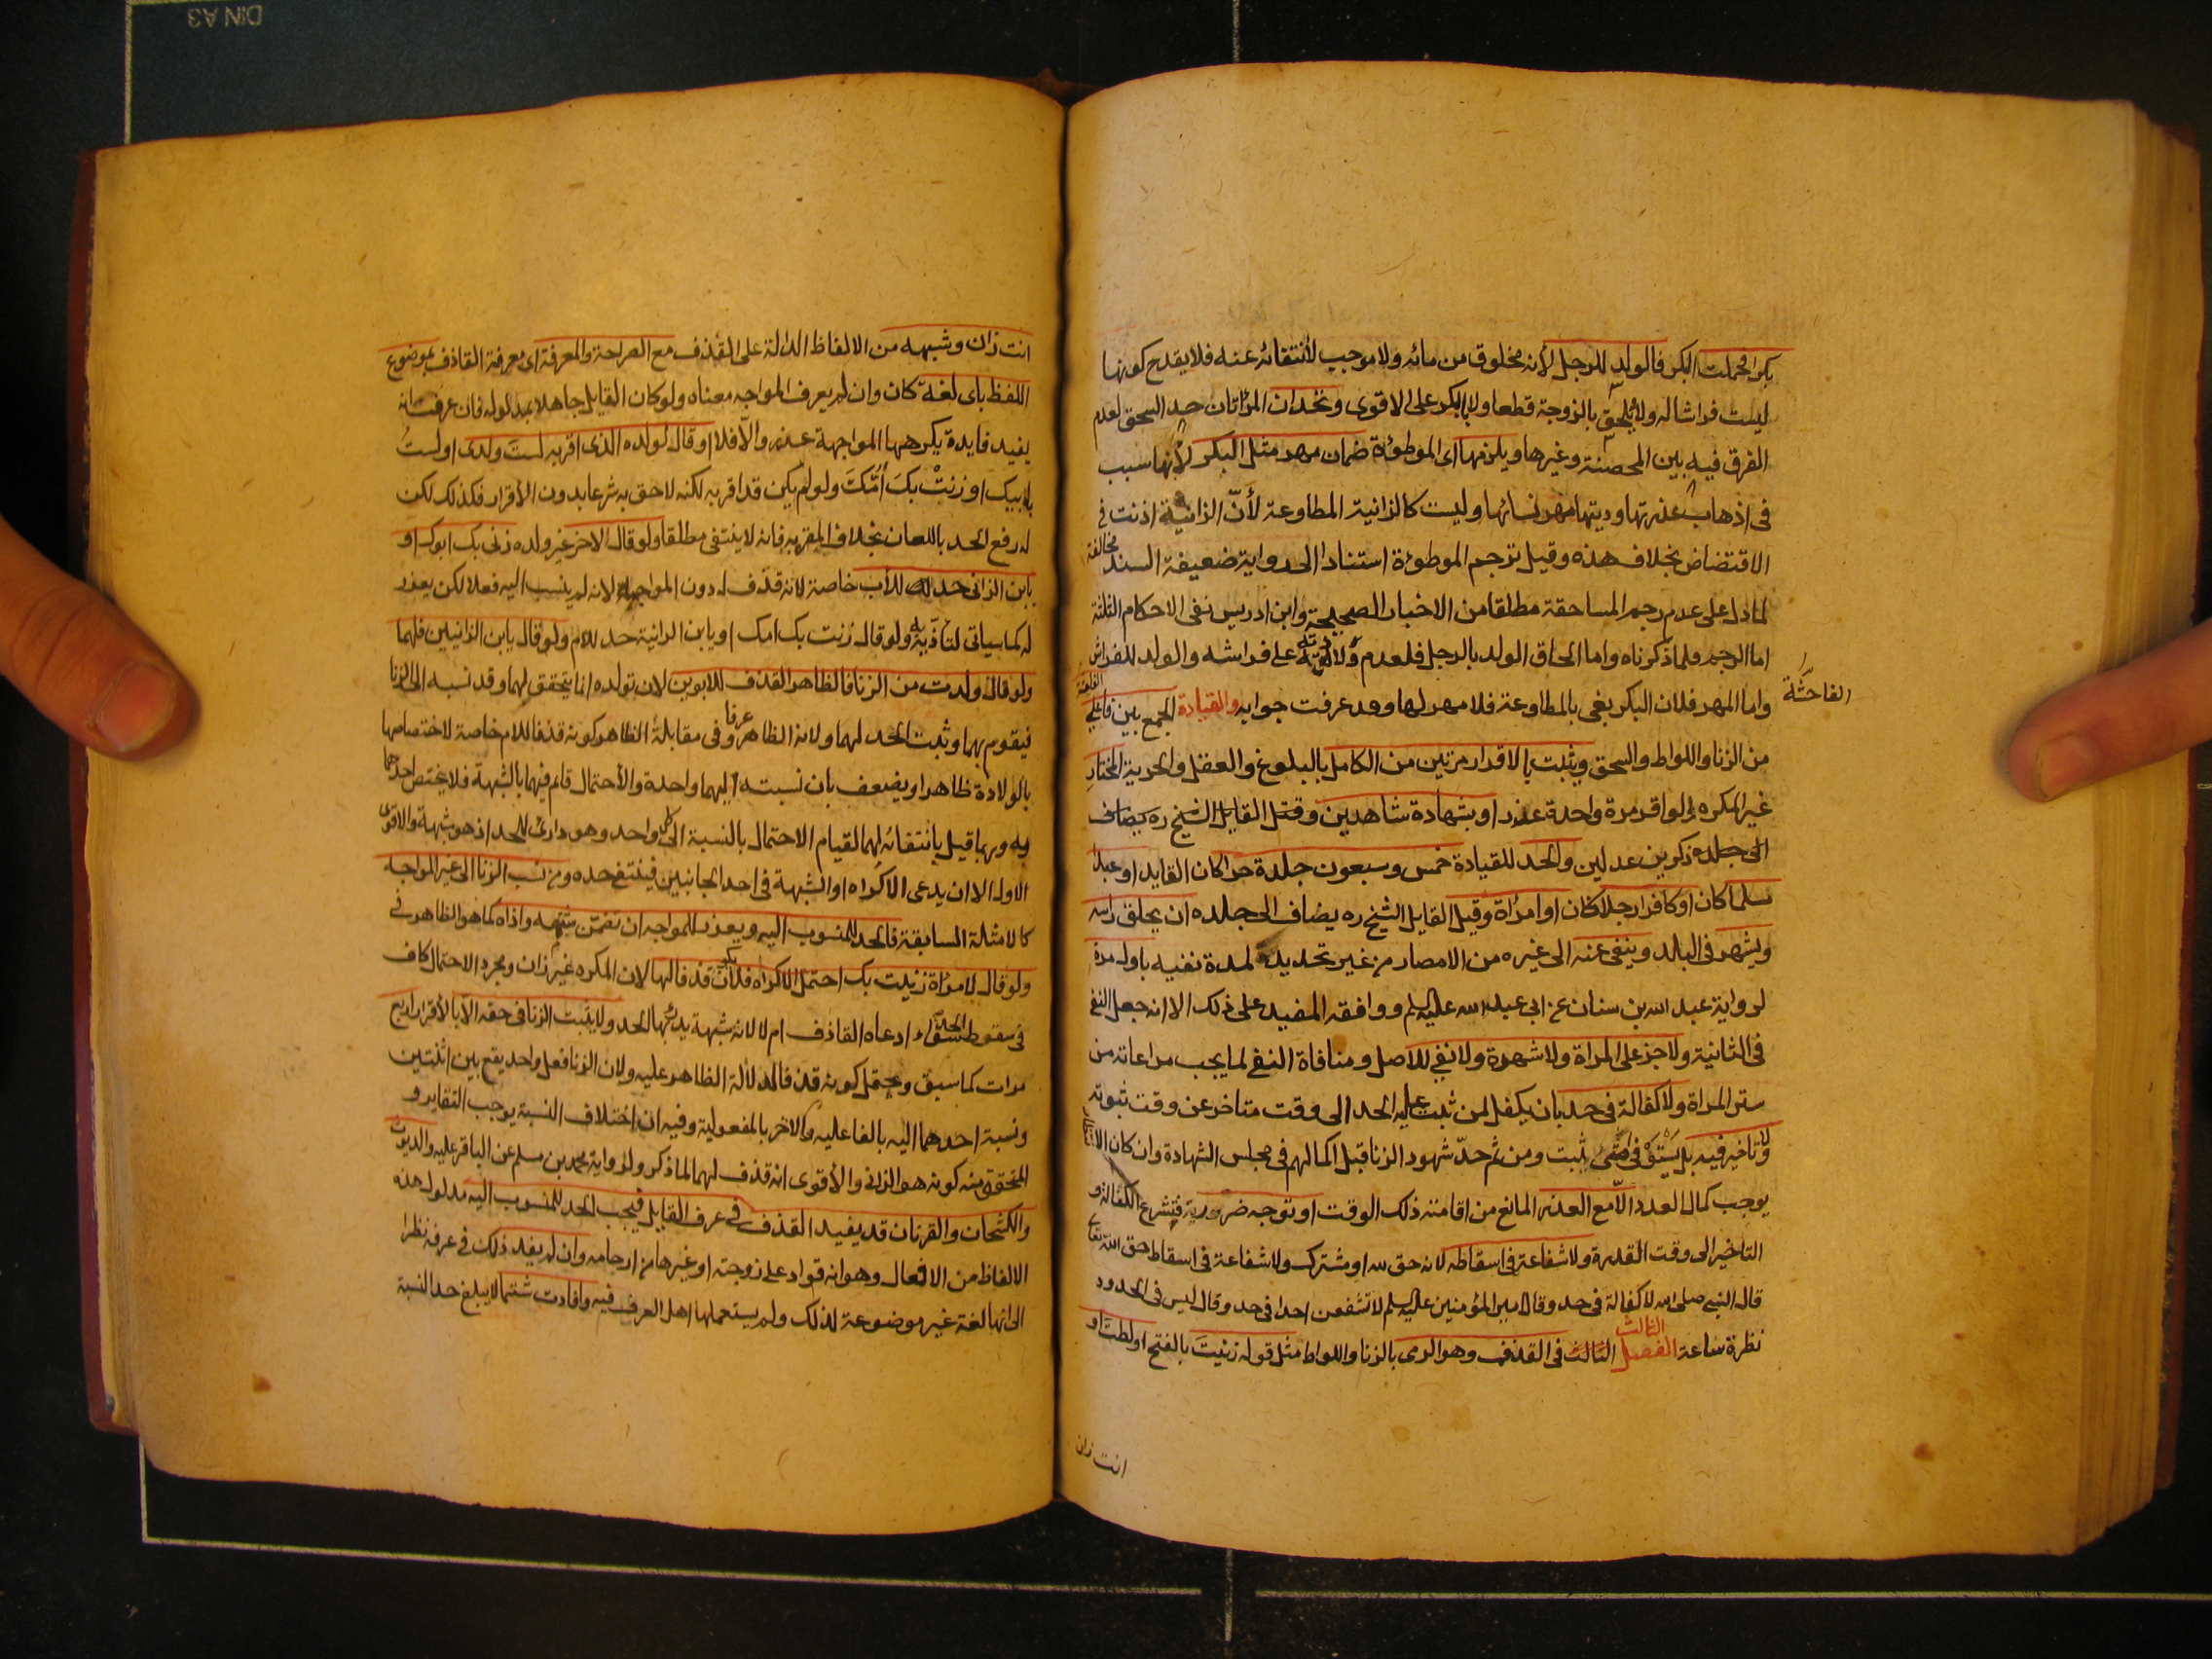 بكرا فحملت البكر فالولد للرجل لأنه مخلوق من مائه ولا موجب لأنتفائه عنه فلا يقدح كونها
ليست فراشا له ولا يلحق بالزوجة قطعا ولا بالبكر على الاقوى وتحدان المرأتان حد السحق لعدم
الفرق فيه بين المحصنة وغيرها ويلزمها اى الموطوءة ضمان مهر مثل البكر لأنها سبب
فى اذهاب عذرتها وديتها مهر نسائها وليست كالزانية المطاوعة لأنّ الزانية اذنت فى
الاقتضاض بخلاف هذه وقيل ترجم الموطوءة استنادا الى رواية ضعيفة السند مخالفة
لما دل على عدم رجم المساحقة مطلقا من الاخبار الصحيحة وابن ادريس نفى الاحكام الثلثة
اما الرجم فلما ذكرناه واما الحاق الولد بالرجل فلعدم ولادته على فراشه والولد للفراش
واما المهر فلان البكر بغى بالمطاوعة فلا مهر لها وقد عرفت جوابه والقيادة الجمع بين فاعلى
الفاحشة
من الزنا واللواط والسحق ويثبت بالاقرار مرتين من الكامل بالبلوغ والعقل والحرية المختار
غير المكره ولو اقر مرة واحدة عزر او بشهادة شاهدين وقيل القايل الشيخ ره يضاف
الى جلده ذكرين عدلين والحد للقيادة خمس وسبعون جلدة حرا كان القايد او عبدا
مسلما كان او كافرا رجلا كان او امرأة وقيل القايل الشيخ ره يضاف الى جلده ان يحلق راسه
ويشهر فى البلد وينفى عنه الى غيره من الامصار من غير تحديد لمدة نفيه باول مرة
لرواية عبد الله بن سنان عن ابى عبد الله عليه السلم ووافقه المفيد على ذلك الا انه جعل النفى
فى الثانية ولا جز على المراة ولا شهرة ولا نفى للاصل ومنافاة النفى لما يجب مراعاته من
ستر المراة ولا كفالة فى حد بان يكفل لمن ثبت عليه الحد الى وقت متاخر عن وقت ثبوته
ولا تاخير فيه بل يستوفى متى يثبت ومن ثم حدّ شهود الزنا قبل اكمالهم فى مجلس الشهادة وان كان الانتظار
يوجب كمال العدد الا مع العذر المانع من اقامته ذلك الوقت او توجه ضرر به فتشرع الكفالة و
التاخير الى وقت القدرة ولا شفاعة فى اسقاطه لانه حق لله او مشترك ولا شفاعة فى اسقاط حق الله تعالى
قال النبى صلى الله لا كفالة فى حد وقال امير المؤمنين عليه السلم لا تشفعن احدا فى حد وقال ليس فى الحدود
نظرة ساعة الفصل الثالث الثالث فى القذف وهو الرمى بالزنا واللواط مثل قوله زنيتَ بالفتح او لطت او
انت زان
انت زان وشبهه من الالفاظ الدالة على القذف مع الصراحة والمعرفة اى معرفة القاذف بموضوع
اللفظ باى لغة كان وان لم يعرف المواجه معناه ولو كان القايل جاهلا بمدلوله فان عرف انه
يفيد فايدة يكرهها المواجهة عزر والّا فلا او قال لولده الذى اقر به لستَ ولدى او لستُ
لابيك او زنتْ بكَ اُمّكَ ولو لم يكن قد اقر به لكنه لاحق به شرعا بدون الأقرار فكذلك لكن
له رفع الحد باللعان بخلاف المقر به فانه لا ينتفى مطلقا ولو قال لاخر غير ولده زنى بك ابوك او
يابن الزانى حد للأب خاصة لانه قذف له دون المواجهة لانه لم ينسب اليه فعلا لكن يعزر
له كما سياتى لتأذّيه ولو قال زنت بك امك او يابن الزانية حد للام ولو قال يابن الزانيين فلهما
ولو قال ولدت من الزنا فالظاهر القذف للابوين لان تولده انما يتحقق لهما وقد نسبه الى الزنا
فيقوم بهما وثبت الحد لهما ولانه الظاهر عرفا وفى مقابلة الظاهر كونه قذفا للام خاصة لاختصاصها
بالولادة ظاهرا ويضعف بان نسبته اليهما واحدة والأحتمال قايم فيهما بالشبهة فلا يختص احدهما
به وربما قيل بانتفائه لهما لقيام الاحتمال بالنسبة الى كل واحد وهو دارئ للحد اذ هو شبهة والاقوى
الاول الا ان يدعى الاكراه او الشبهة فى احد الجانبين فينتفى حده ومن نسب الزنا الى غير المواجه
كالامثلة السابقة فالحد للمنسوب اليه ويعزر للمواجه ان تضمن شتمه واذاه كما هو الظاهر فى
ولو قال لامرأة زنيت بك احتمل الاكراه فلا يكون قذفا لها لان المكره غير زان ومجرد الاحتمال كاف
فى سقوط الحد سواء ادعاه القاذف ام لا لانه شبهة يدرء بها الحد ولا يثبت الزنا فى حقه الا بالأقرار اربع
مرات كما سبق ويحتمل كونه قذفا لدلالة الظاهر عليه ولان الزنا فعل واحد يقع بين اثنتين
ونسبة احدهما اليه بالفاعليه والاخر بالمفعولية وفيه ان اختلاف النسبة يوجب التغاير و
المتحقق منه كونه هو الزانى والأقوى انه قذف لهما لما ذكر ولرواية محمد بن مسلم عن الباقر عليه والديوث
والكشخان والقرنان قد يفيد القذف فى عرف القايل فيجب الحد للمنسوب اليه مدلول هذه
الالفاظ من الافعال وهو انه قواد على زوجته او غيرها من ارحامه وان لم يفد ذلك فى عرفه نظرا
الى انها لغة غير موضوعة لذلك ولم يستعملها اهل العرف فيه وافادت شتما لا يبلغ حد النسبة
DIN A3